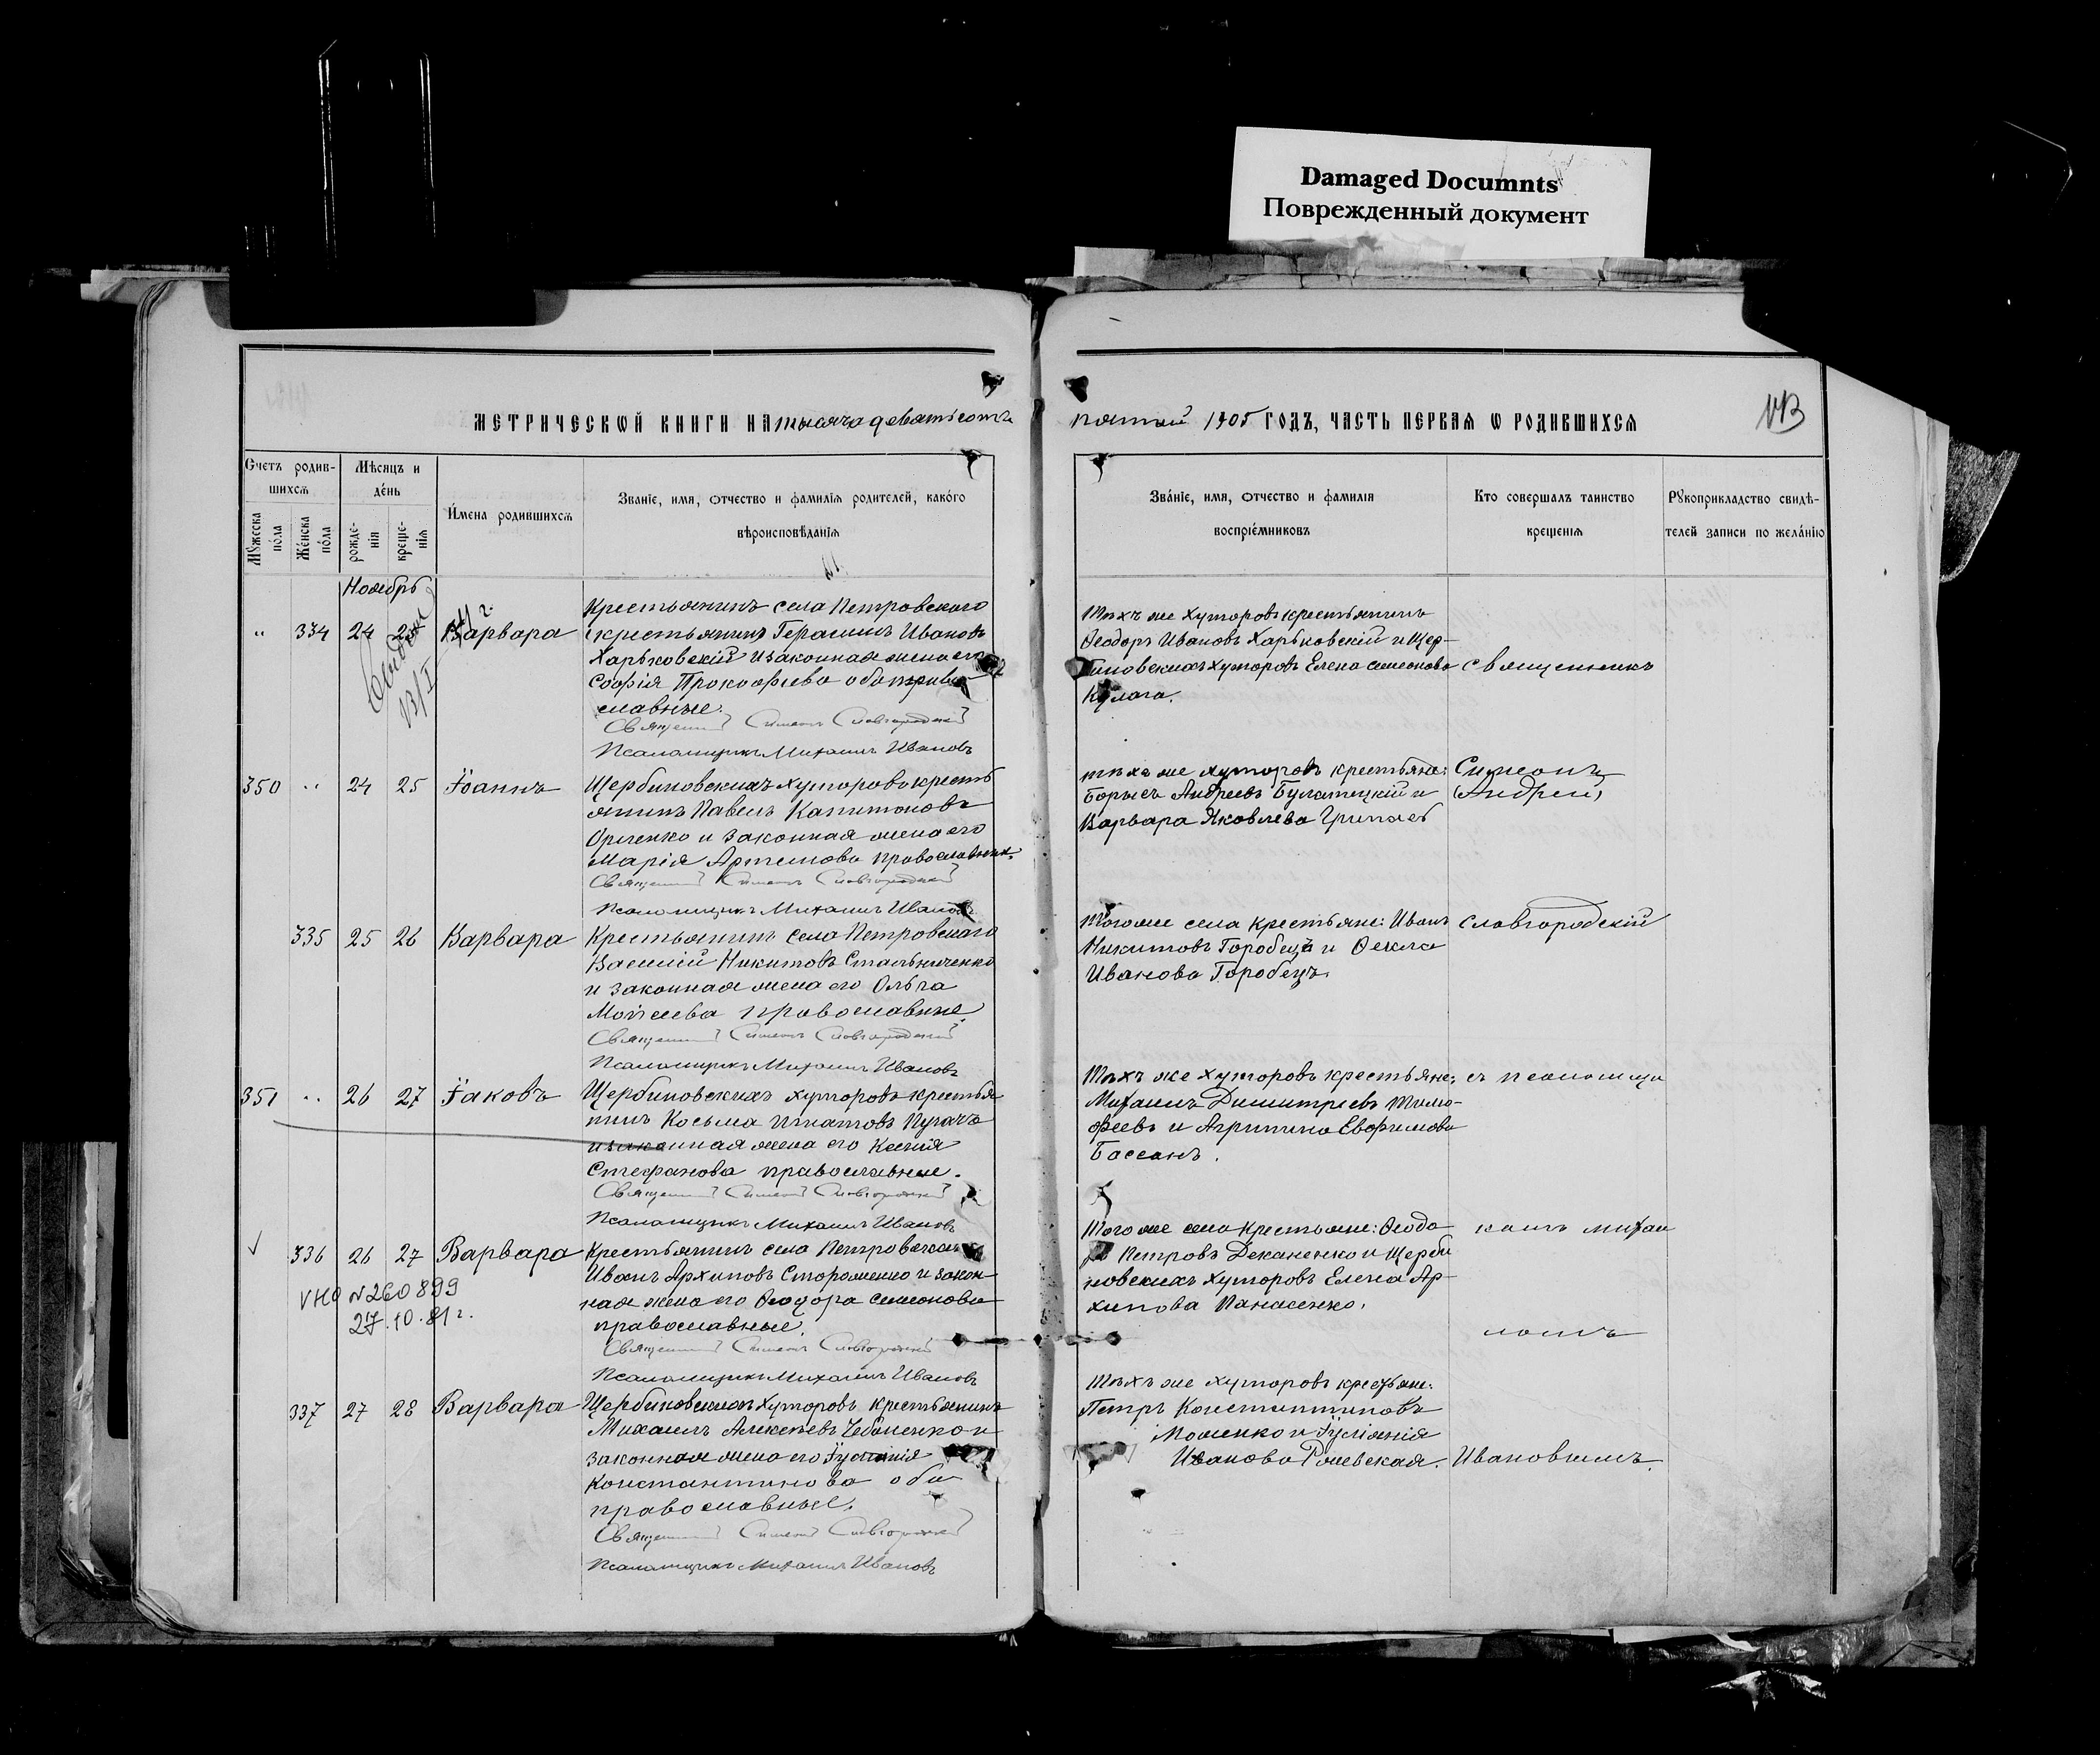 Damaged Documnts
Поврежденный документ
МЕТРИЧЕСКѠЙ КНИГИ НА тысяча девятьсотъ
пятый 1905 ГОДЪ, ЧАСТЬ ПЕРВАѦ Ѡ РОДИВШИХСѦ
Счетъ родив-
шихсѧ
Мꙋжеска по́ла
Же́нска по́ла
Мѣсѧцъ и
де́нь
рожде-
нїѧ
креще-
нїѧ
И́мена родившихсѧ
Званїе, имѧ, ѻтчество и фамилїѧ родителей, како́го
вѣроисповѣданїѧ
Зва́нїе, имѧ, ѻтчество и фамилїѧ
воспрїе́мниковъ
Кто совершалъ таинство
крещенїѧ
Рꙋкоприкладство свидѣ-
телей записи по жела́нїю
Ноябрь
" 334 24 25 Варвара
Крестьянинъ села Петровского
крестьянинъ Герасимъ Ивановъ
Харьковскій и законная жена его
Софія Прокофьева оба право-
славные.
Священникъ Симеонъ Славгородскій
Псаломщикъ Михаилъ Ивановъ
Тѣхъ же хуторовъ крестьянинъ
Ѳеодоръ Ивановъ Харьковскій и Щер-
биновскихъ хуторовъ Елена Симеонова
Кулага.
Священникъ
350 " 24 25 Іоаннъ
Щербиновскихъ хуторовъ кресть
янинъ Павелъ Капитоновъ
и законная жена его
Марія Артемова православные.
Священникъ Симеонъ Славгородскій
Псаломщикъ Михаилъ Ивановъ
тѣхъ же хуторовъ крестьяне:
Борисъ Андреевъ и
Варвара Яковлева
Симеонъ
(Андрей)
335 25 26 Варвара
Крестьянинъ села Петровского
Василій Никитовъ Стальниченко
и законная жена его Ольга
Моѵсеева православные.
Священникъ Симеонъ Славгородскій
Псаломщикъ Михаилъ Ивановъ
Того же села крестьяне: Иванъ
Никитовъ Горобецъ и Ѳекла
Иванова Горобецъ.
Славгородскій
351 " 26 27 Іаковъ
Щербиновскихъ хуторовъ крестья
нинъ Косьма Игнатовъ Пугачъ
и законная жена его Ксенія
Стефанова православные.
Священникъ Симеонъ Славгородскій
Псаломщикъ Михаилъ Ивановъ
Тѣхъ же хуторовъ крестьяне:
Михаилъ Димитріевъ Тимо-
феевъ и Агрипина Евфимова
Бассанъ.
съ псаломщи
336 26 27 Варвара
VНО N260899
27.10.81 г.
Крестьянинъ села Петровскаго
Иванъ Архиповъ Стороженко и закон-
ная жена его Ѳеодора Симеонова
православные.
Священникъ Симеонъ Славгородскій
Псаломщикъ Михаилъ Ивановъ
Того же села крестьяне: Ѳеодо
ръ Петровъ Деканенко и Щерби
новскихъ хуторовъ Елена Ар-
хипова Панасенко.
комъ Михаи
ломъ
337 27 28 Варвара
Щербиновскихъ хуторовъ крестьянинъ
Михаилъ Алексѣевъ Чебаненко и
законная жена его Іустинія
Константинова оба
православные.
Священникъ Симеонъ Славгородскій
Псаломщикъ Михаилъ Ивановъ
Тѣхъ же хуторовъ крестьяне:
Петръ Константиновъ
и
Иванова
Ивановымъ.